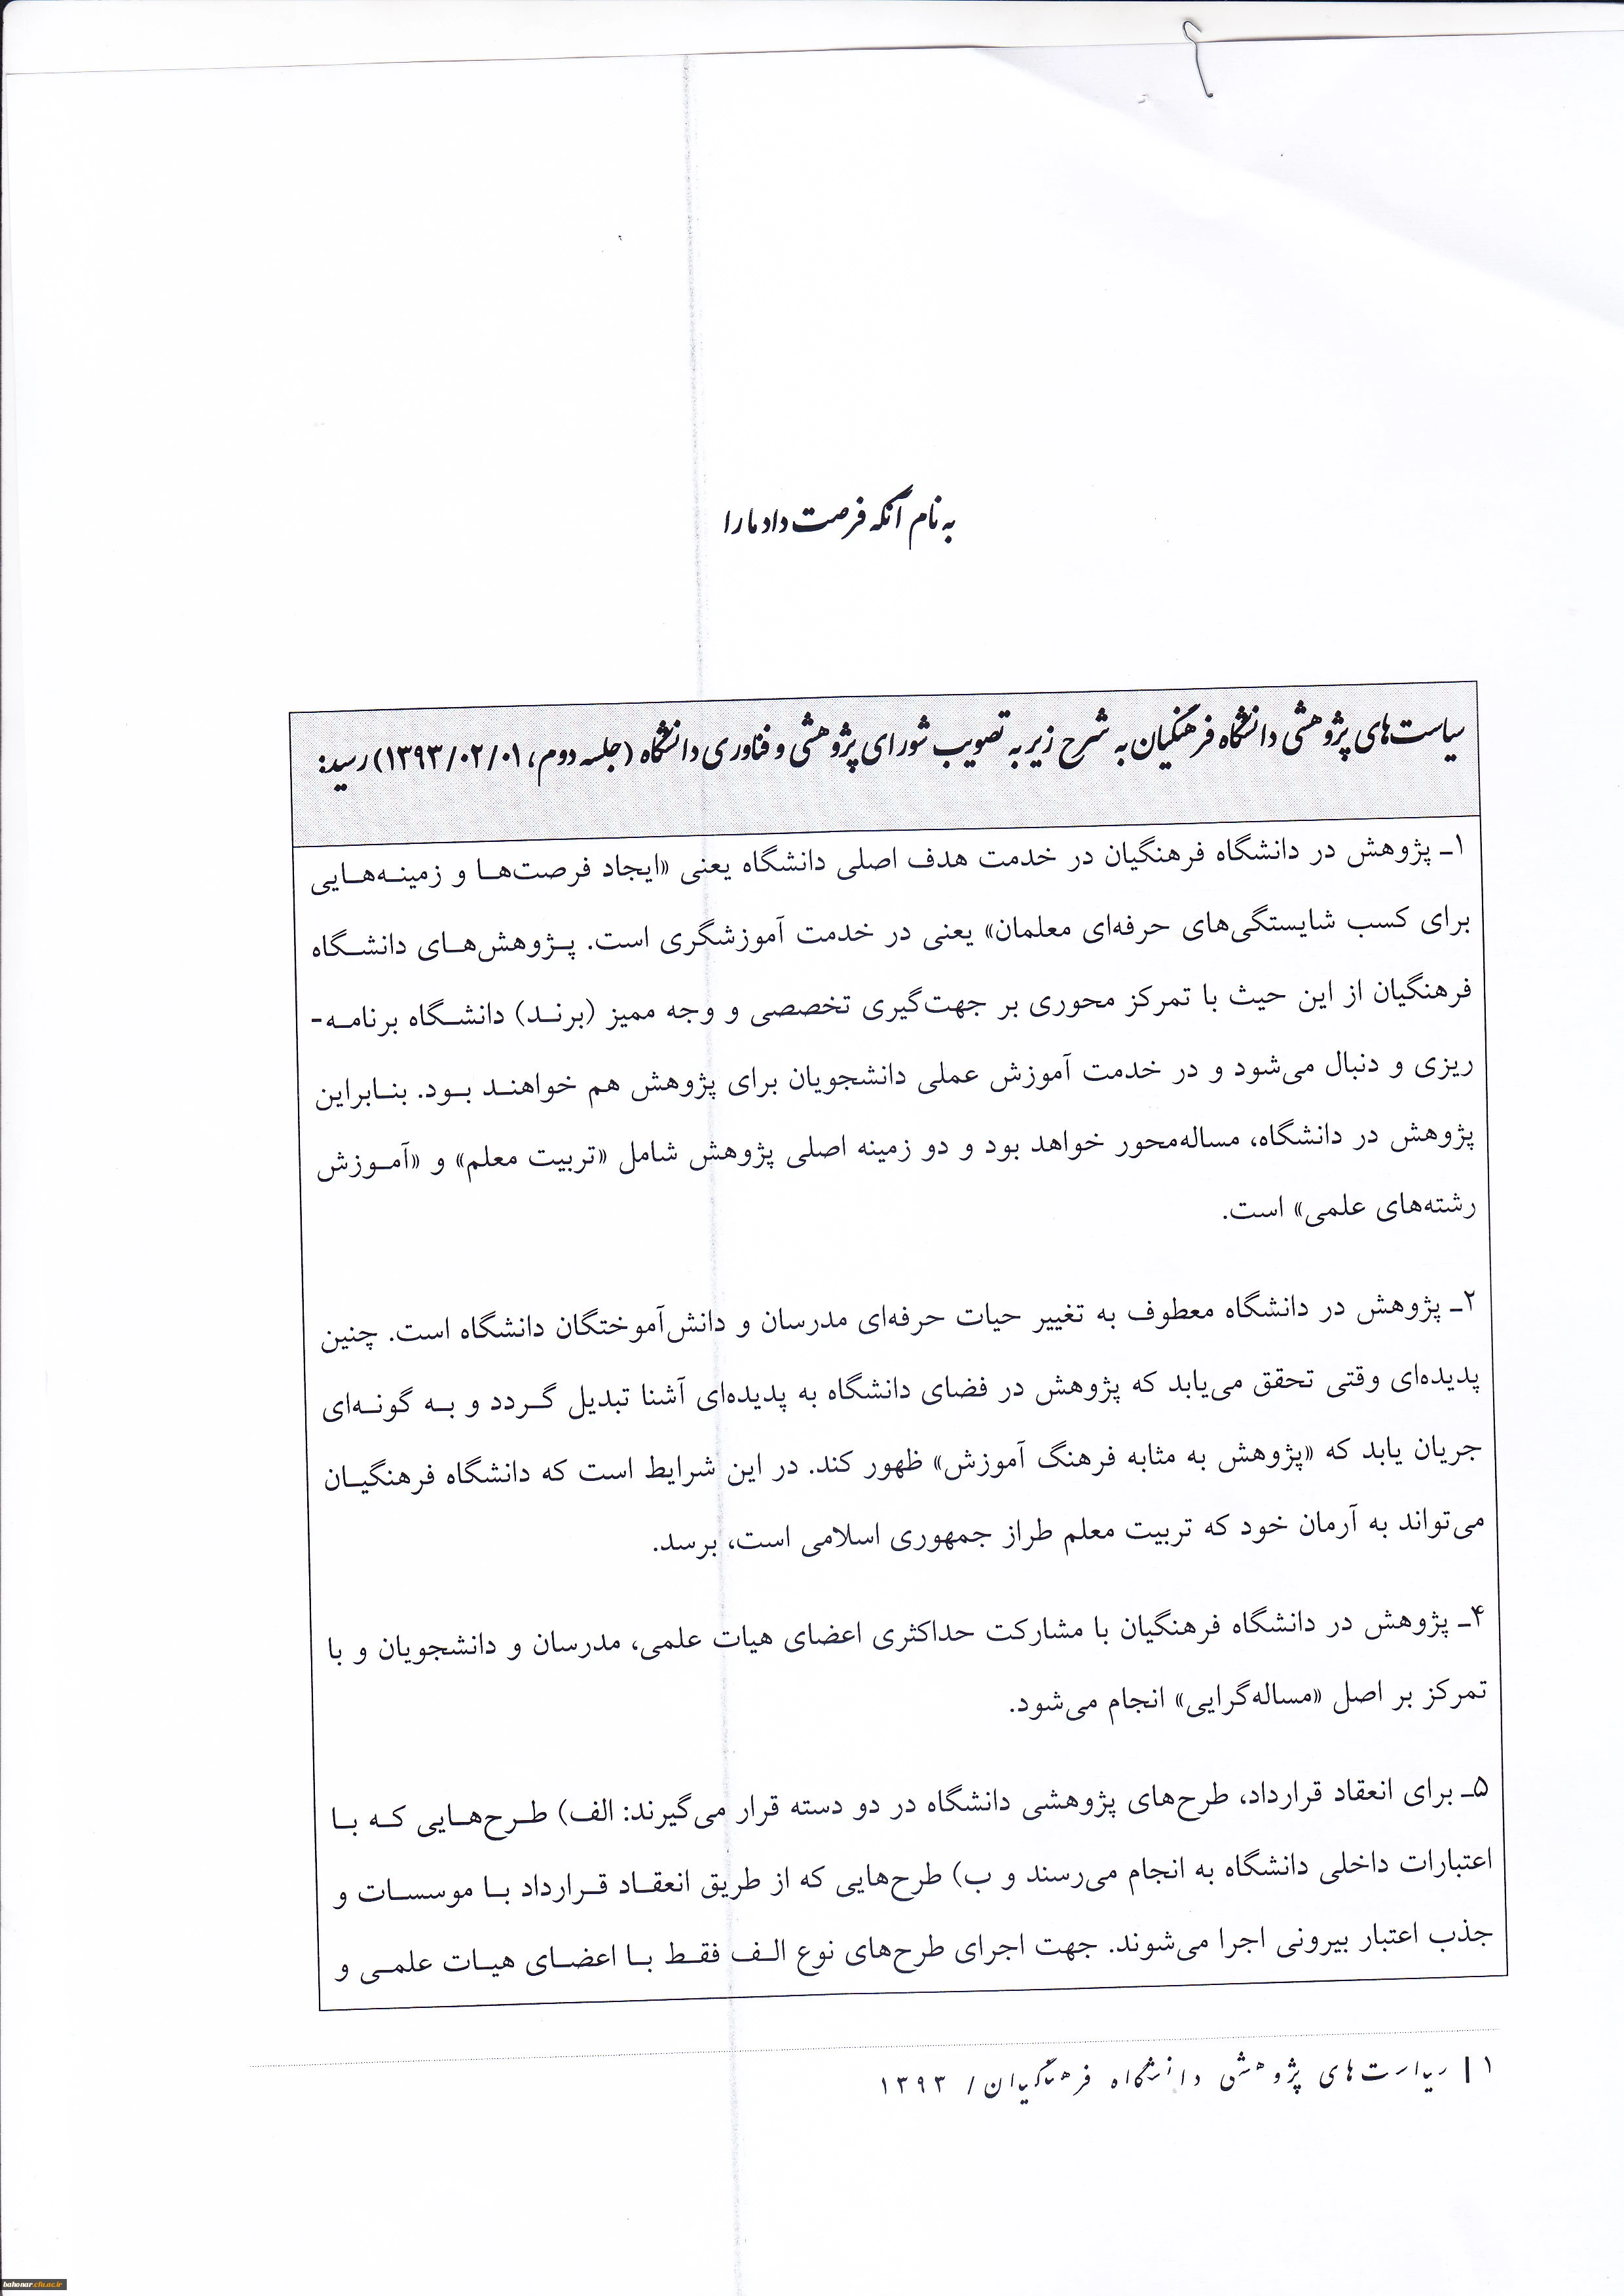 به نام آنکه فرصت داد ما را
سیاست‌های پژوهشی دانشگاه فرهنگیان به شرح زیر به تصویب شورای پژوهشی و فناوری دانشگاه (جلسه دوم، ۱۳۹۳/۰۲/۰۱) رسید:
۱ـ پژوهش در دانشگاه فرهنگیان در خدمت هدف اصلی دانشگاه یعنی «ایجاد فرصت‌هـا و زمینـه‌هـایی
برای کسب شایستگی‌های حرفه‌ای معلمان» یعنی در خدمت آموزشگری است. پـژوهش‌هـای دانشـگاه
فرهنگیان از این حیث با تمرکز محوری بر جهت‌گیری تخصصی و وجه ممیز (برنـد) دانشـگاه برنامـه-
ریزی و دنبال می‌شود و در خدمت آموزش عملی دانشجویان برای پژوهش هم خواهنـد بـود. بنـابراین
پژوهش در دانشگاه، مساله‌محور خواهد بود و دو زمینه اصلی پژوهش شامل «تربیت معلم» و «آمـوزش
رشته‌های علمی» است.
۲ـ پژوهش در دانشگاه معطوف به تغییر حیات حرفه‌ای مدرسان و دانش‌آموختگان دانشگاه است. چنین
پدیده‌ای وقتی تحقق می‌یابد که پژوهش در فضای دانشگاه به پدیده‌ای آشنا تبدیل گـردد و بـه گونـه‌ای
جریان یابد که «پژوهش به مثابه فرهنگ آموزش» ظهور کند. در این شرایط است که دانشگاه فرهنگیـان
می‌تواند به آرمان خود که تربیت معلم طراز جمهوری اسلامی است، برسد.
۴ـ پژوهش در دانشگاه فرهنگیان با مشارکت حداکثری اعضای هیات علمی، مدرسان و دانشجویان و با
تمرکز بر اصل «مساله‌گرایی» انجام می‌شود.
۵ـ برای انعقاد قرارداد، طرح‌های پژوهشی دانشگاه در دو دسته قرار می‌گیرند: الف) طـرح‌هـایی کـه بـا
اعتبارات داخلی دانشگاه به انجام می‌رسند و ب) طرح‌هایی که از طریق انعقـاد قـرارداد بـا موسسـات و
جذب اعتبار بیرونی اجرا می‌شوند. جهت اجرای طرح‌های نوع الـف فقـط بـا اعضـای هیـات علمـی و
۱ | سیاست‌های پژوهشی دانشگاه فرهنگیان/ ۱۳۹۳
bahonar.cfu.ac.ir